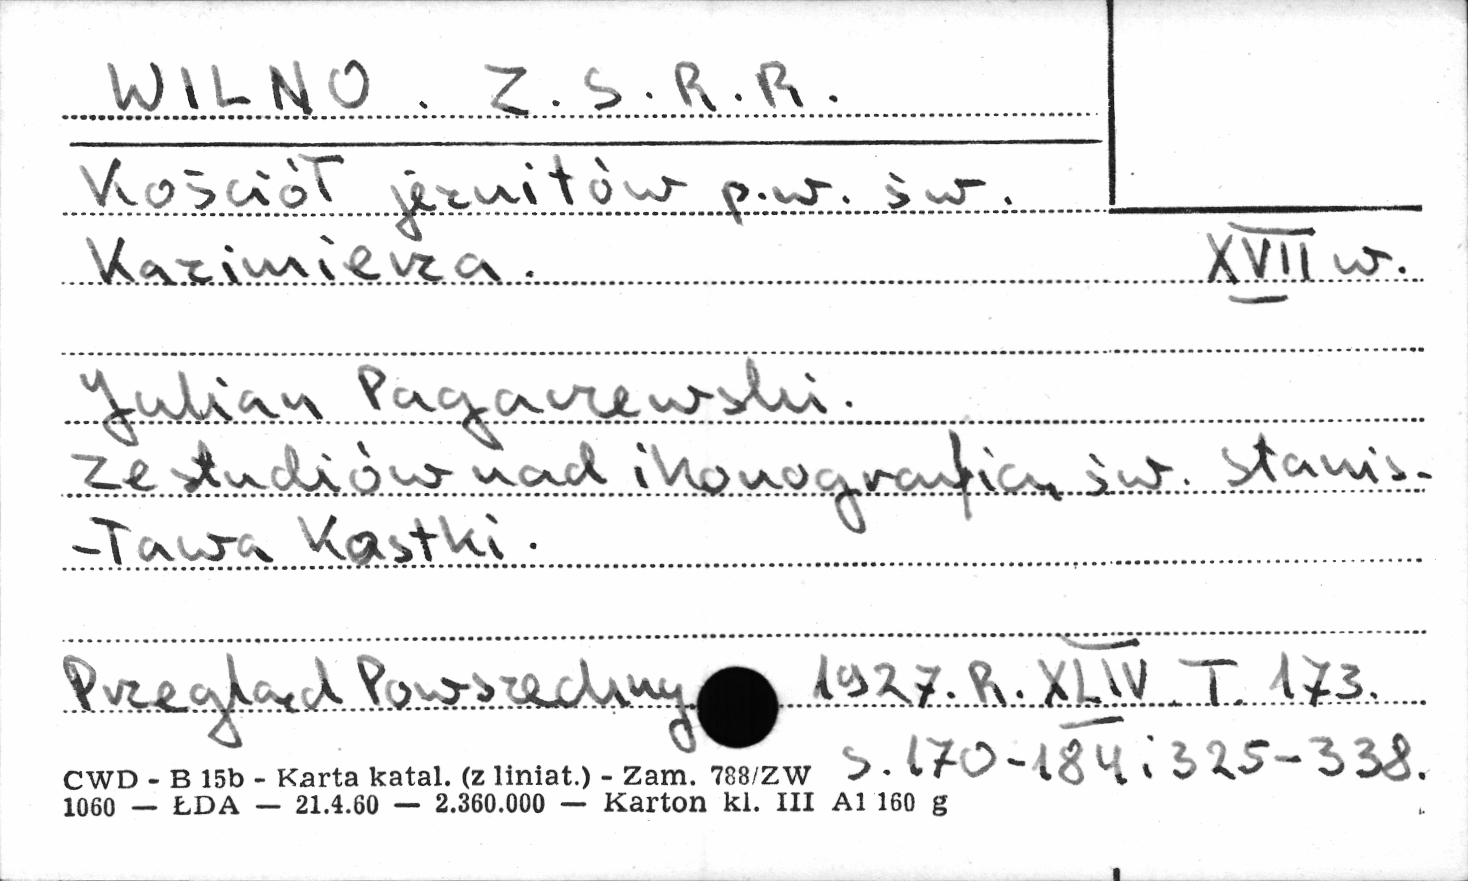 WILNO. Z.S.R.R.
Kościół jezuitów p.w. św.
Kazimierza. XVII w.
Julian Pagaczewski.
Ze studiów nad ikonografią św. Stanis-
-ława Kostki.
Przegląd Powszechny 1927. R. XLIV. T. 173.
s. 170-184 i 325-338.
CWD - B 15b - Karta katal. (z liniat.) - Zam. 788/ZW
1060 — ŁDA — 21.4.60 — 2.360.000 — Karton kl. III A1 160 g